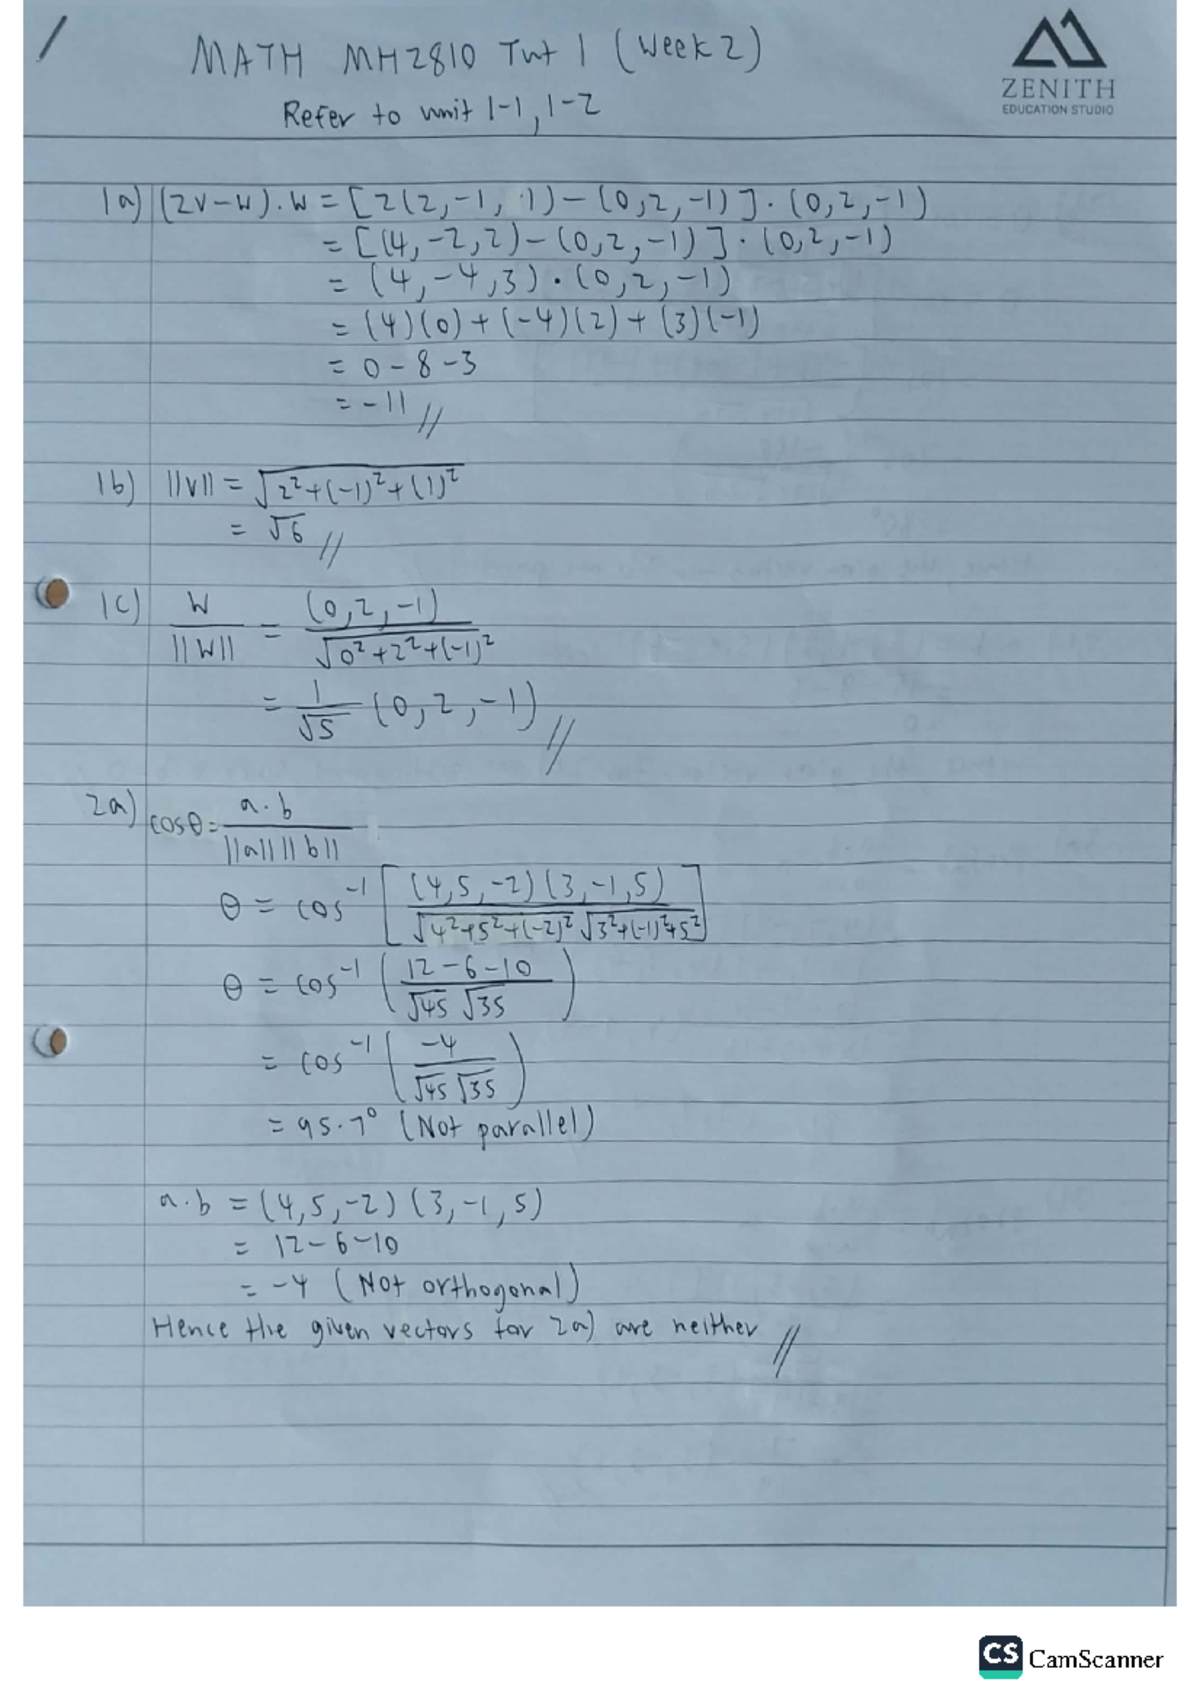 MATH MH2810 Tut 1 (Week 2)
ZENITH
EDUCATION STUDIO
Refer to unit 1-1, 1-2
1a) (2v-w).w = [2(2,-1, 1)-(0,2,-1)].(0,2,-1)
= [(4,-2,2)-(0,2,-1)].(0,2,-1)
= (4,-4,3).(0,2,-1)
= (4)(0)+(-4)(2)+(3)(-1)
= 0-8-3
= -11 //
1b) ||v|| = √(2²+(-1)²+(1)²)
= √6 //
1c) w/||w|| = (0,2,-1)/√(0²+2²+(-1)²)
= 1/√5 (0,2,-1) //
2a) cosθ = a.b/(||a|| ||b||)
θ = cos⁻¹ [(4,5,-2)(3,-1,5)/(√(4²+5²+(-2)²) √(3²+(-1)²+5²))]
θ = cos⁻¹ ((12-6-10)/(√45 √35))
= cos⁻¹ (-4/(√45 √35))
= 95.7° (Not parallel)
a.b = (4,5,-2)(3,-1,5)
= 12-6-10
= -4 (Not orthogonal)
Hence the given vectors for 2a) are neither //
CS CamScanner